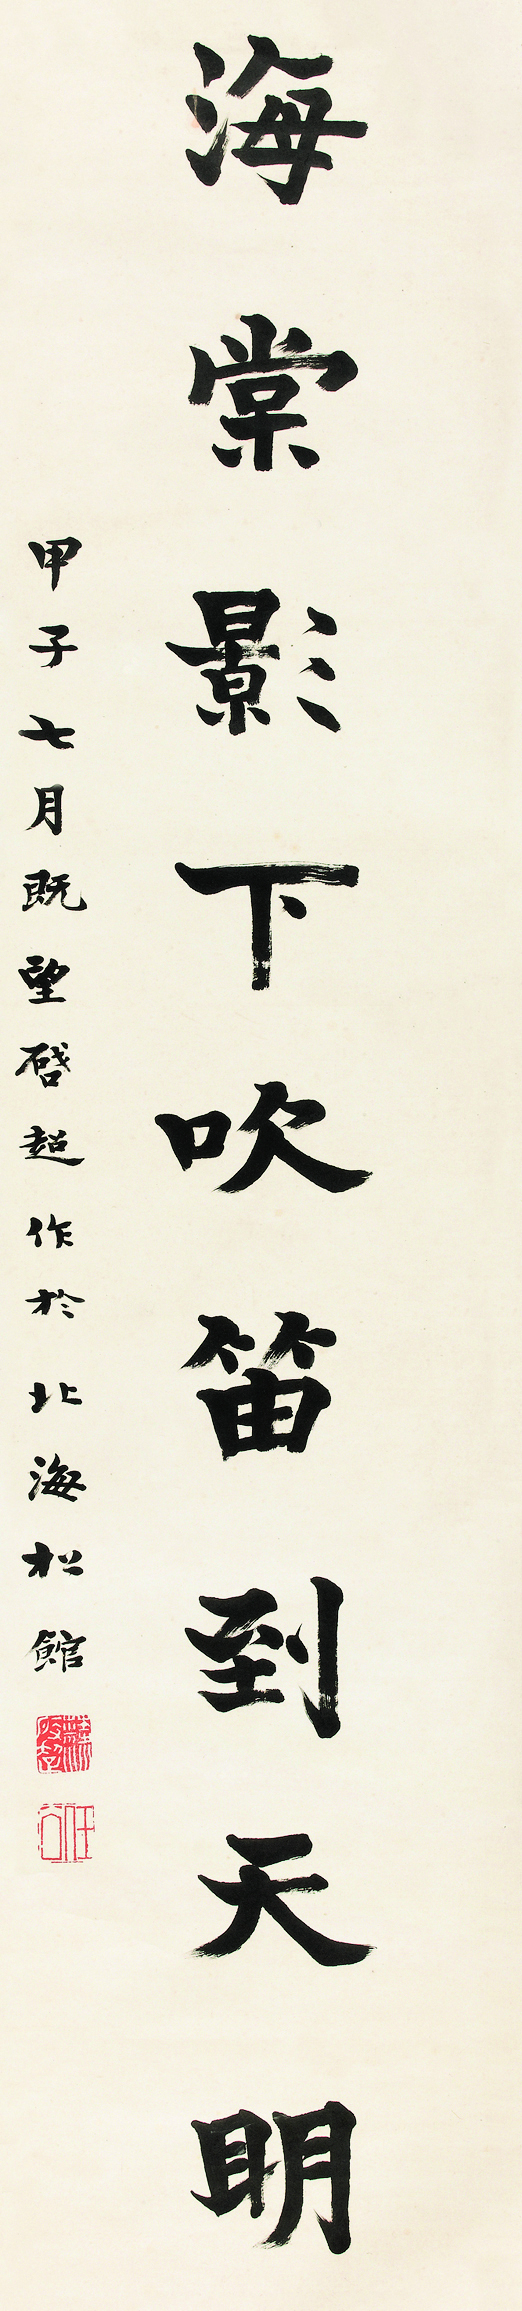 海棠影下吹笛到天明
甲子七月既望啓超作於北海松館
任公